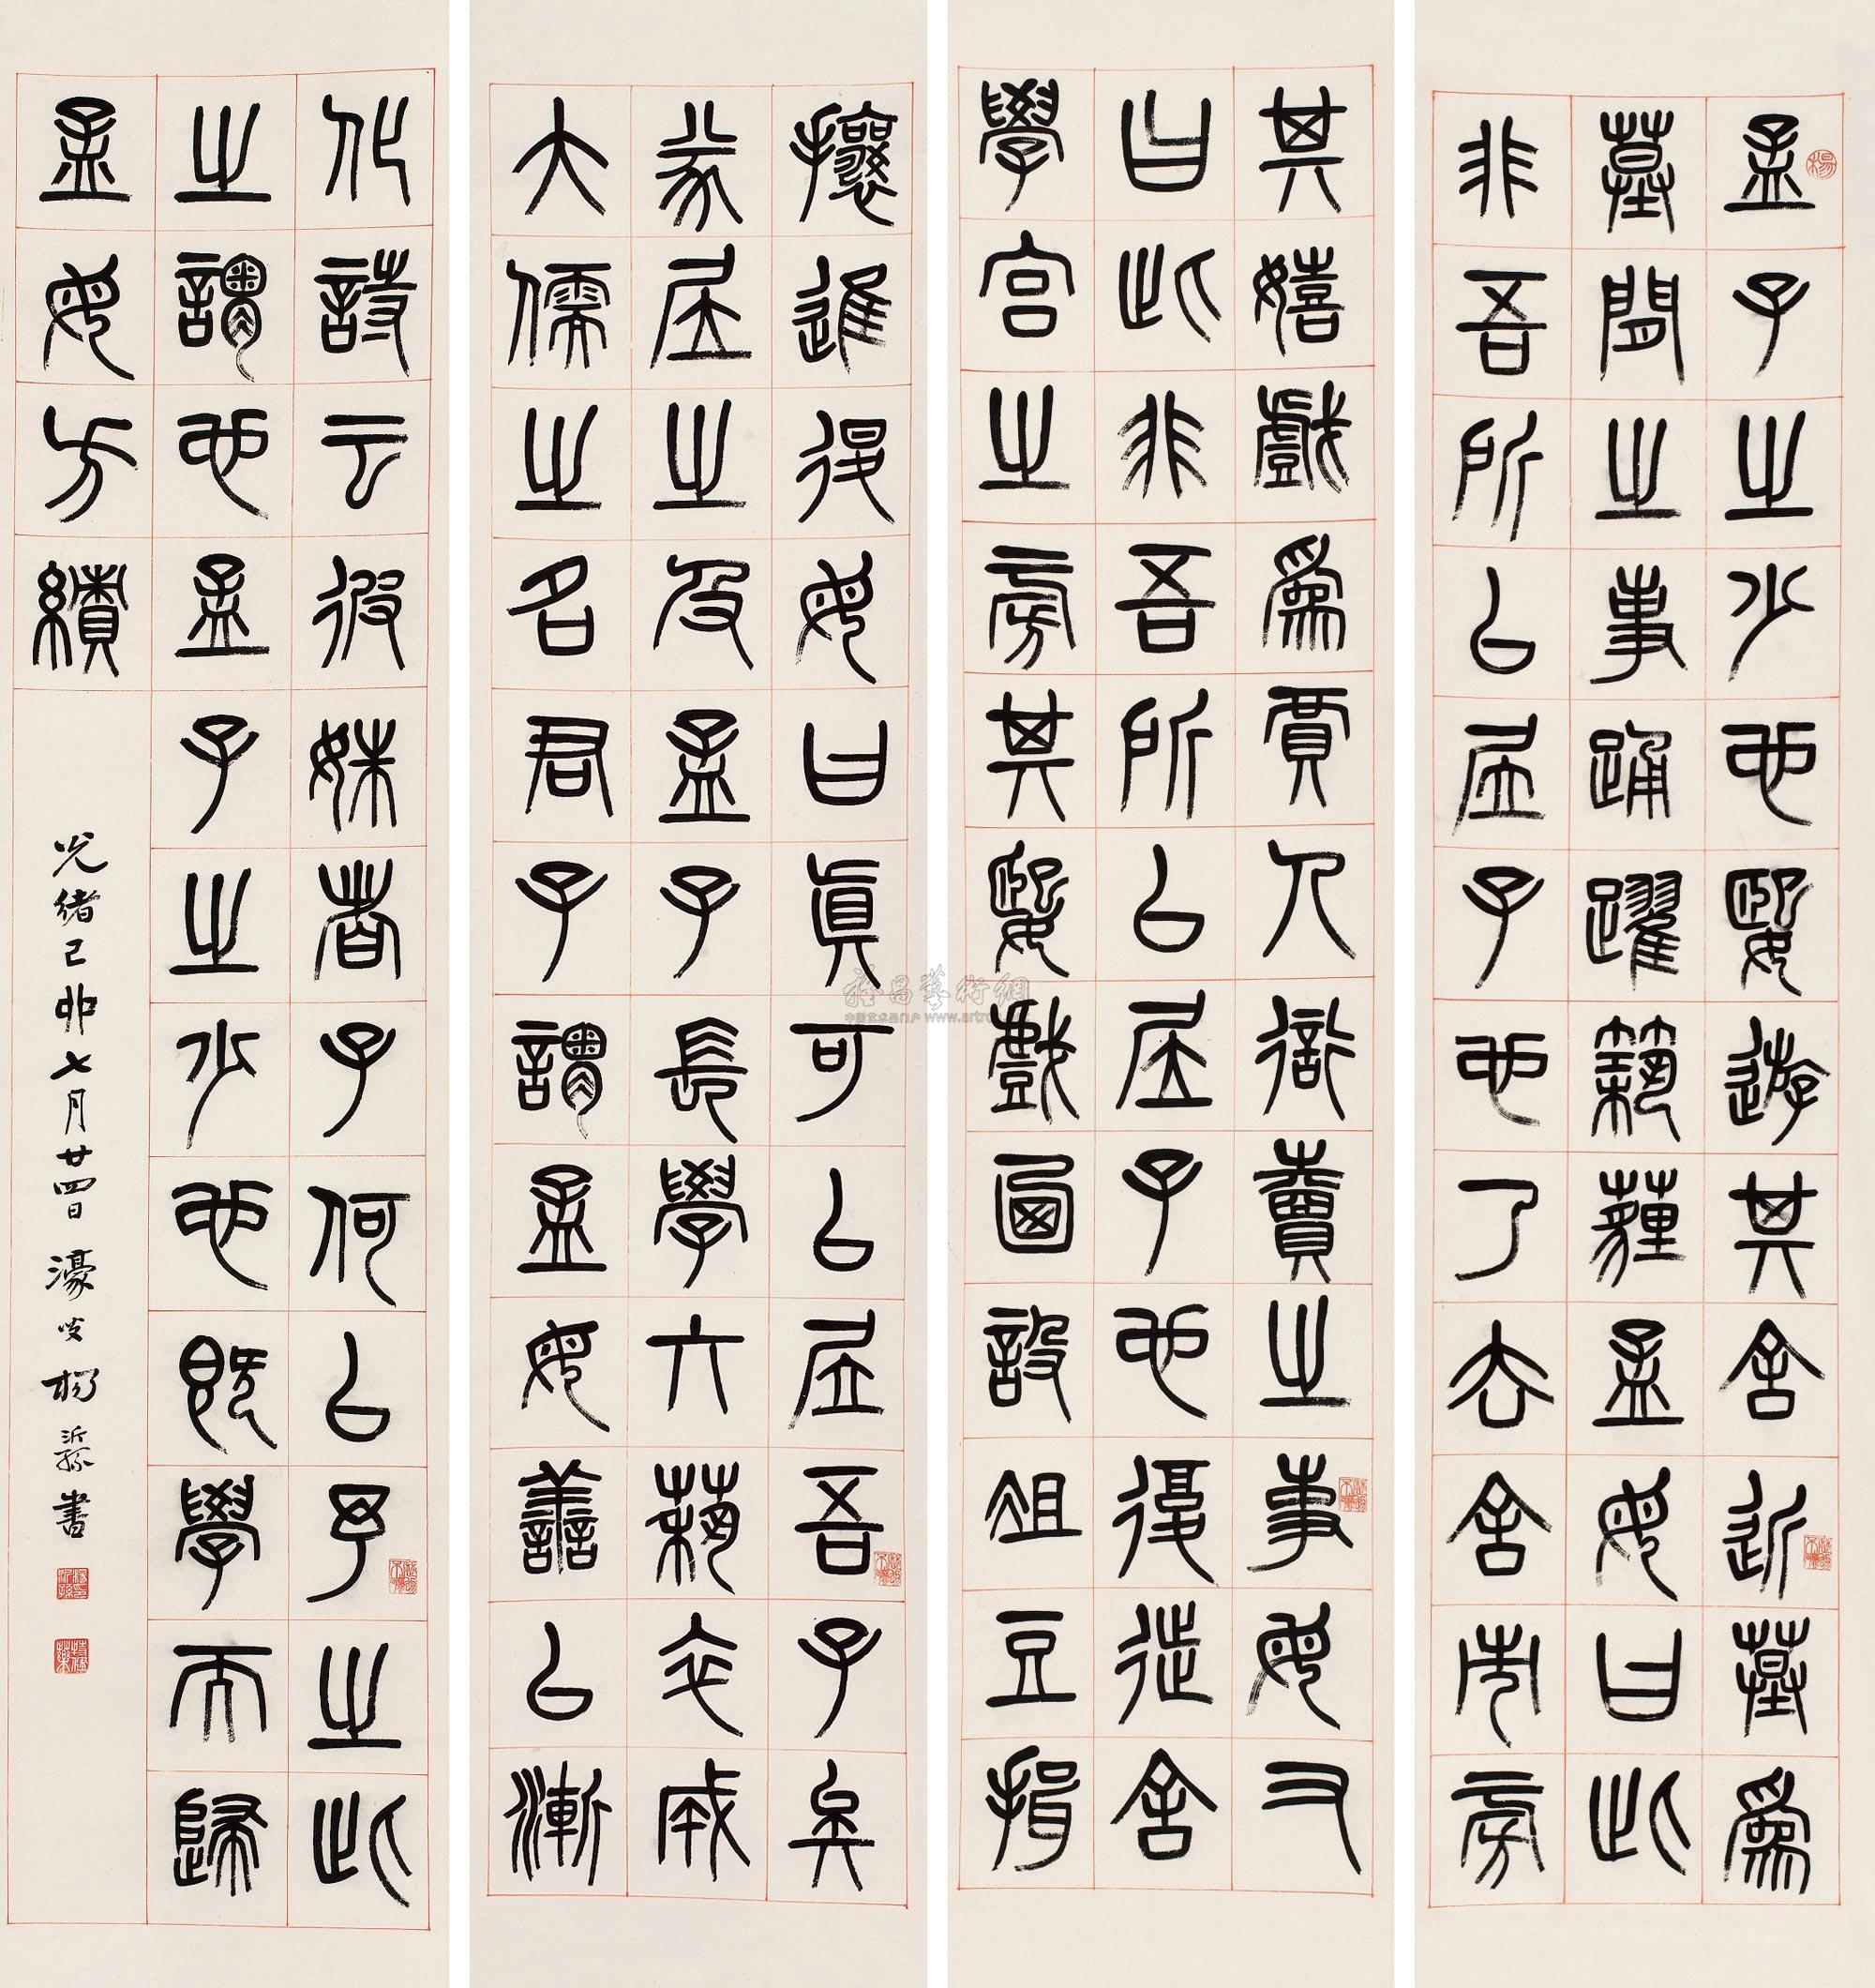 孟子之少也媐遊其舍近墓為
墓間之事踊躍築薶孟母曰此
非吾所以居子也乃去舍市旁
其嬉戲為賈人衒賣之事母又
曰此非吾所以居子也復徙舍
學宮之旁其媐戲圖設俎豆揖
攘進退母曰真可以居吾子矣
遂居之及孟子長學六藝卒成
大儒之名君子謂孟母善以漸
化詩云彼姝者子何以予之此
之謂也孟子之少也既學而歸
孟母方績
光緒己卯七月廿四日濠叟楊沂孫書
雅昌藝術網